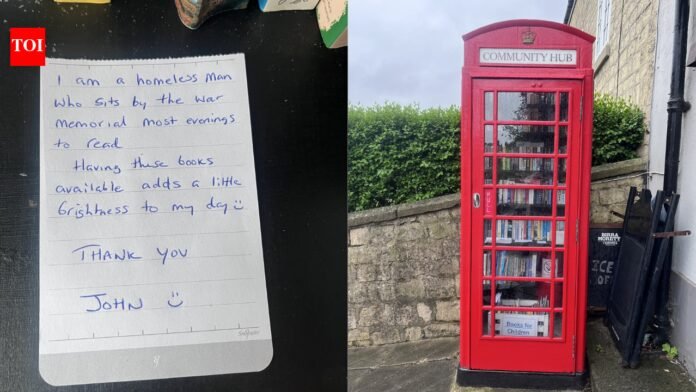 TOI
I am a homeless man
who sits by the war
memorial most evenings
to read
Having these books
available adds a little
brightness to my day
THANK YOU
JOHN
COMMUNITY HUB
BIRRA
MORETTI
ICE
Books for
Children